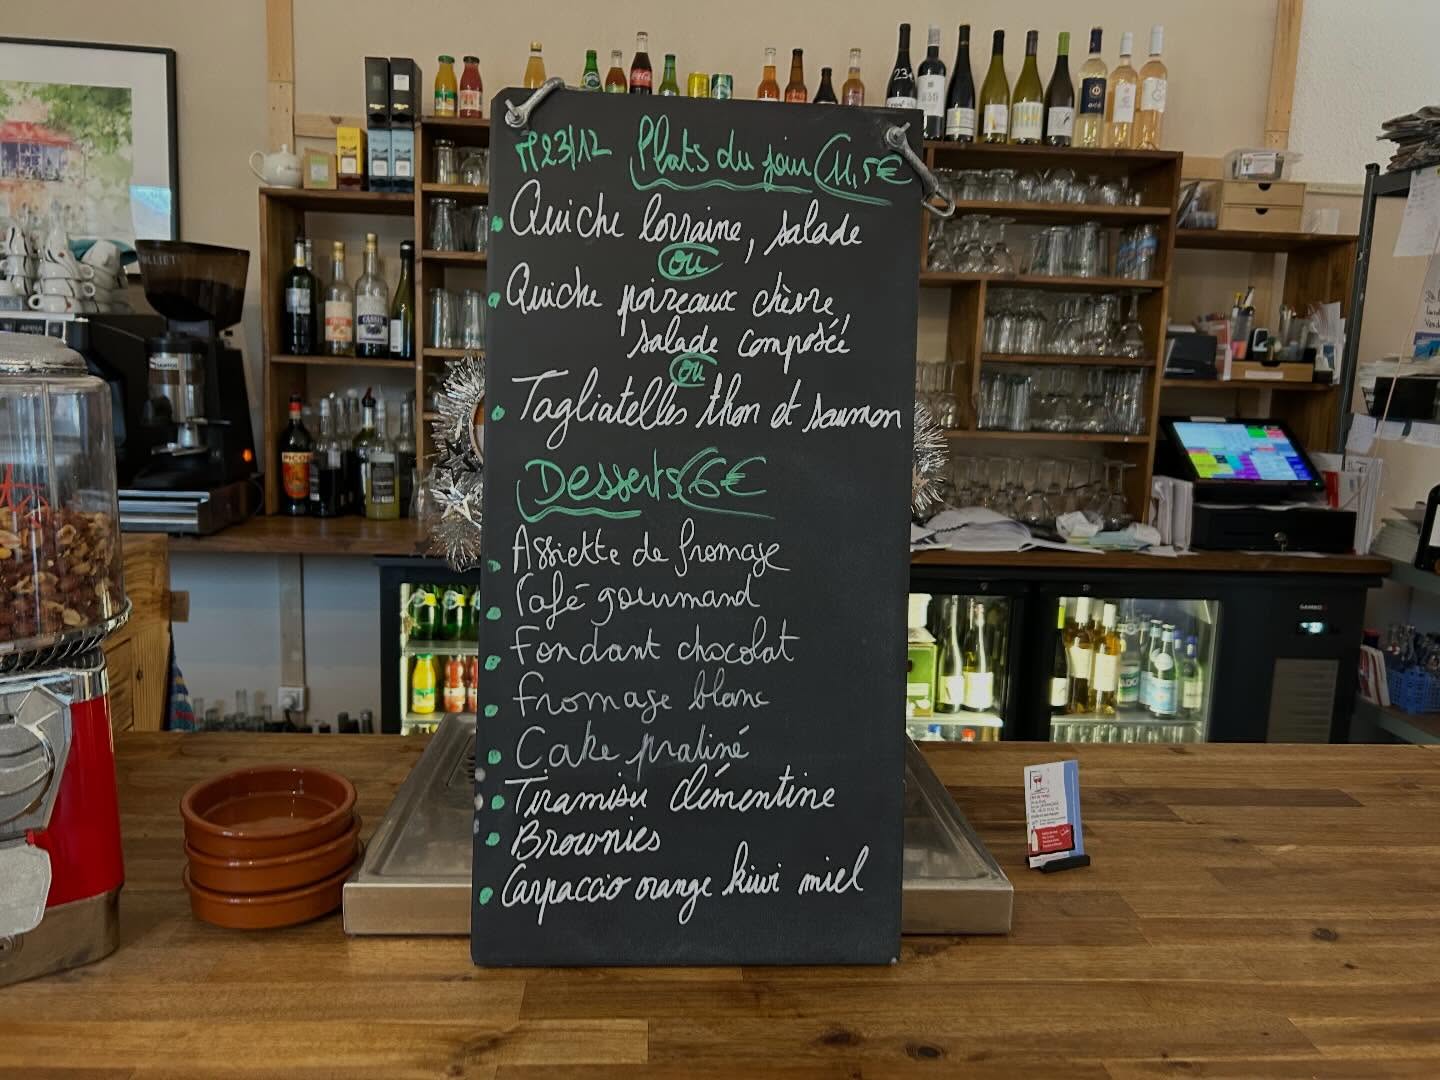 23/12 Plats du jour (11,5€
Quiche lorraine, salade
ou
Quiche poireaux chèvre
salade composée
ou
Tagliatelles thon et saumon
Desserts (6€
Assiette de fromage
Café gourmand
Fondant chocolat
fromage blanc
Cake praliné
Tiramisu clémentine
Brownies
Carpaccio orange kiwi miel